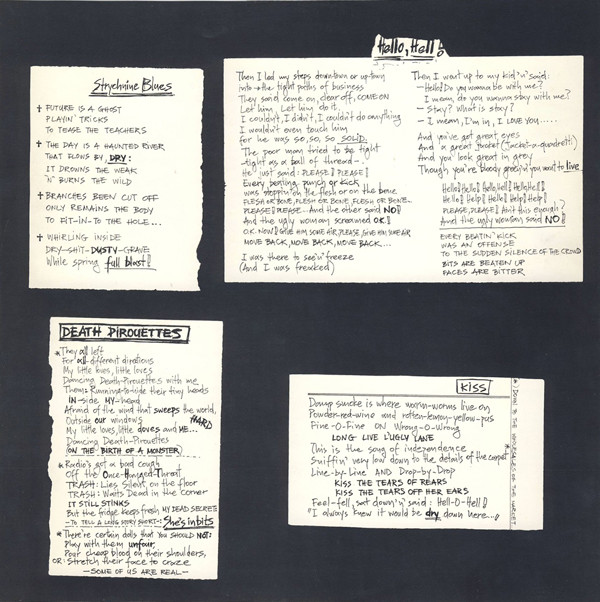 Strychnine Blues
† FUTURE IS A GHOST
PLAYIN' TRICKS
TO TEASE THE TEACHERS
† THE DAY IS A HAUNTED RIVER
THAT FLOWS BY, DRY:
IT DROWNS THE WEAK
'N' BURNS THE WILD
† BRANCHES BEEN CUT OFF
ONLY REMAINS THE BODY
TO FIT-IN-TO THE HOLE...
† WHIRLING INSIDE
DRY-SHIT-DUSTY-GRAVE
While spring full blast!
Hello, Hell!
Then I led my steps downtown or up-town
into the tight paths of business
They said come on, clear off, COME ON
Let him, Let him do it
I couldn't, I didn't, I couldn't do anything
I wouldn't even touch him
for he was so, so, so SOLID.
The poor man tried to be tight
-tight as a ball of thread-
He just said: PLEASE! PLEASE!
Every beating, punch or kick
was steppin' on the flesh or on the bone
FLESH OR BONE, FLESH OR BONE, FLESH OR BONE-
PLEASE! PLEASE... And the other said NO!
And the ugly woman screamed O.K!
O.K. NOW! GIVE HIM SOME AIR, PLEASE GIVE HIM SOME AIR
MOVE BACK, MOVE BACK, MOVE BACK...
I was there to see 'n' freeze
(And I was freaked)
Then I went up to my kid 'n' said:
-Hello! Do you wanna be with me?
I mean, do you wanna stay with me?
- Stay? What is stay?
- I mean, I'm in, I LOVE YOU.....
And you've got great eyes
And a great jacket (Jacket-a-quadretti)
And you look great in grey
Though you're bloody greein' you want to live
Hello! Hello! Hello, Hell! Hello, Hell!
Hello! Help! Hello! Help! Help!
PLEASE, PLEASE! Ain't this enough?
And the ugly woman said NO!
EVERY BEATIN' KICK
WAS AN OFFENSE
TO THE SUDDEN SILENCE OF THE CROWD
BITS ARE BEATEN UP
FACES ARE BITTER
DEATH PIROUETTES
* They all left
For all-different directions
My little loves, little loves
Dancing Death-Pirouettes with me
Them: Running-to-hide their tiny heads
IN-side MY-head
Afraid of the wind that sweeps the world,
Outside our windows HARD
My little loves, little doves and ME...
Dancing Death-Pirouettes
(ON THE BIRTH OF A MONSTER)
* Radio's got a bad cough
Off the Once-Hanged-Throat
TRASH: Lies Silent, on the floor
TRASH: Waits Dead in the Corner
IT STILL STINKS
But the fridge keeps fresh MY DEAD SECRETS
-TO TELL A LONG STORY SHORT-: She's in bits
* There're certain dolls that You SHOULD NOT:
Play with them unfair,
Pour cheap blood on their shoulders,
OR: Stretch their face to craze
-SOME OF US ARE REAL-
KISS
Damp smoke is where warm-worms live on
Powder-red-wine and rotten-lemon-yellow-pus
Fine-O-Fine ON Wrong-O-Wrong
LONG LIVE L'UGLY LANE
This is the song of independence
Sniffin' very low down to the details of the carpet *
Line-by-Line AND Drop-by-Drop
KISS THE TEARS OF REARS
KISS THE TEARS OFF HER EARS
Feel-fell, sat down 'n' said: Hell-O-Hell!
"I always knew it would be dry down here..."